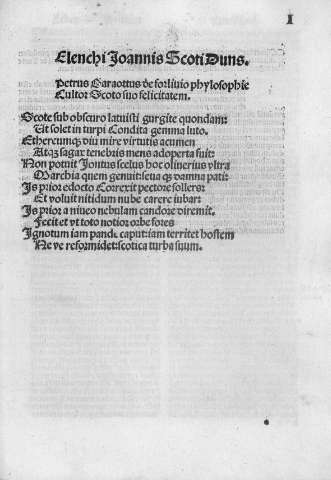 I
Elenchi Joannis Scoti Duns.
Petrus Garaottus de forliuio phylosophie
Cultor Scoto suo felicitatem.
Scote sub obscuro latuisti gurgite quondam:
Ut solet in turpi Condita gemma luto.
Ethereumqꝫ diu mire virtutis acumen
Atqꝫ sagax tenebris mens adoperta fuit:
Non potuit scelus hoc oliuerius vltra
Marchia quem genuit seua qꝫ damna pati:
Is prior edocto Correxit pectore sollers:
Et voluit nitidum nube carere iubar:
Is prior a niueo nebulam candore diremit.
Fecit et vt toto notior orbe fores
Ignotum iam pande caput: iam territet hostem
Ne ve reformidet: scotica turba suum.